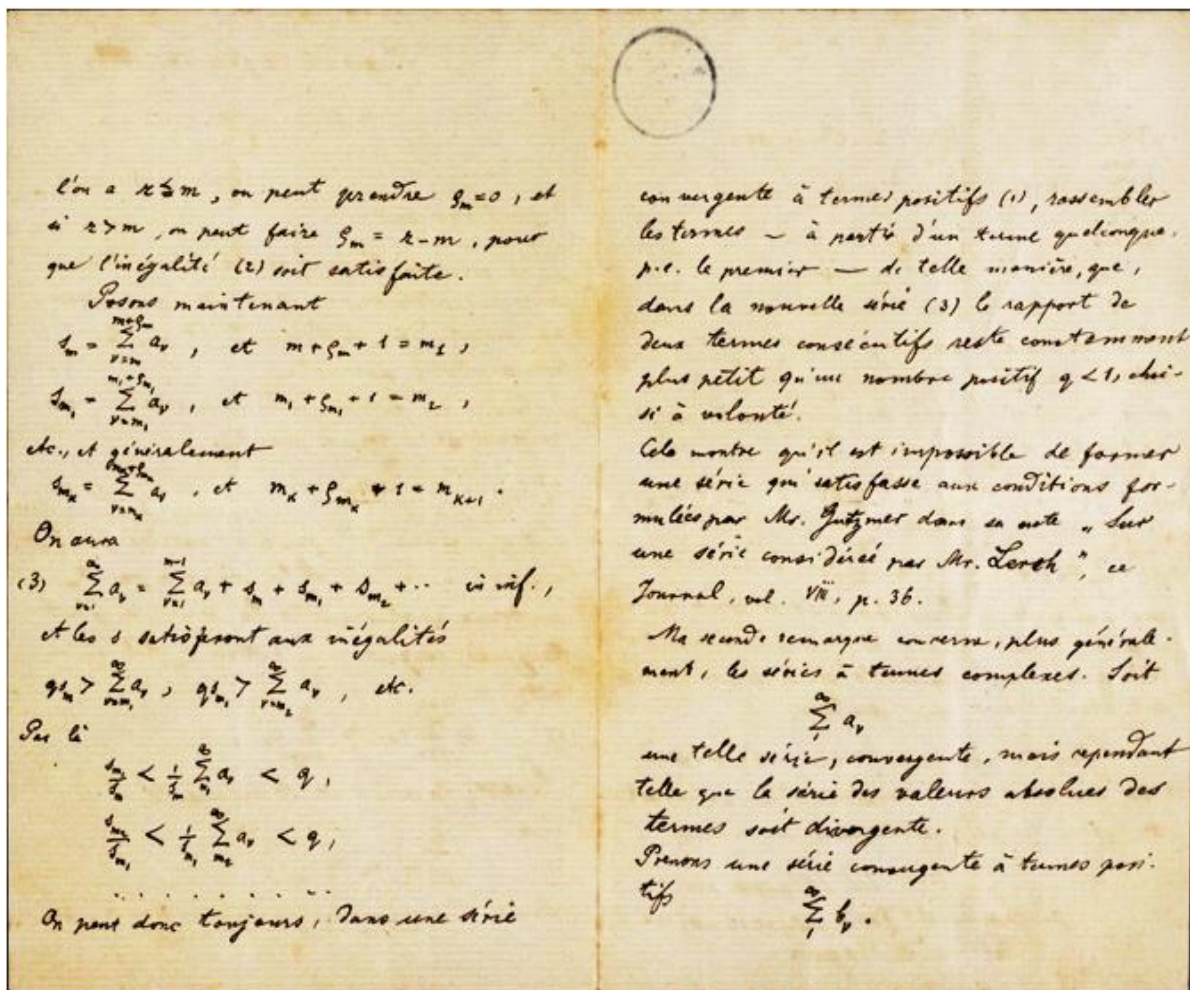 l'on a r ≦ m, on peut prendre ϱₘ = 0, et
si r > m, on peut faire ϱₘ = r − m, pour
que l'inégalité (2) soit satisfaite.
Posons maintenant
sₘ = ∑_{ν=m}^{m+ϱₘ} a_ν, et m + ϱₘ + 1 = m₁,
s_{m₁} = ∑_{ν=m₁}^{m₁+ϱ_{m₁}} a_ν, et m₁ + ϱ_{m₁} + 1 = m₂,
etc., et généralement
s_{mₖ} = ∑_{ν=mₖ} a_ν, et mₖ + ϱ_{mₖ} + 1 = m_{κ+1}.
On aura
(3) ∑_{ν=1}^{∞} a_ν = ∑_{ν=1}^{m-1} a_ν + sₘ + s_{m₁} + s_{m₂} + ·· in inf.,
et les s satisferont aux inégalités
qsₘ > ∑_{ν=m₁}^{∞} a_ν, qs_{m₁} > ∑_{ν=m₂}^{∞} a_ν, etc.
Par là
s_{m₁}/sₘ < 1/sₘ ∑_{m₁}^{∞} a_ν < q,
s_{m₂}/s_{m₁} < 1/s_{m₁} ∑_{m₂}^{∞} a_ν < q,
. . . . . . . . . .
On peut donc toujours, dans une série
convergente à termes positifs (1), rassembler
les termes — à partir d'un terme quelconque,
p.e. le premier — de telle manière, que,
dans la nouvelle série (3) le rapport de
deux termes consécutifs reste constamment
plus petit qu'un nombre positif q < 1, choi-
si à volonté.
Cela montre qu'il est impossible de former
une série qui satisfasse aux conditions for-
mulées par Mr. Gutzmer dans sa note „Sur
une série considérée par Mr. Lerch", ce
Journal, vol. VIII, p. 36.
Ma seconde remarque concerne, plus générale-
ment, les séries à termes complexes. Soit
∑_{1}^{∞} a_ν
une telle série, convergente, mais cependant
telle que la série des valeurs absolues des
termes soit divergente.
Prenons une série convergente à termes posi-
tifs
∑_{1}^{∞} b_ν.